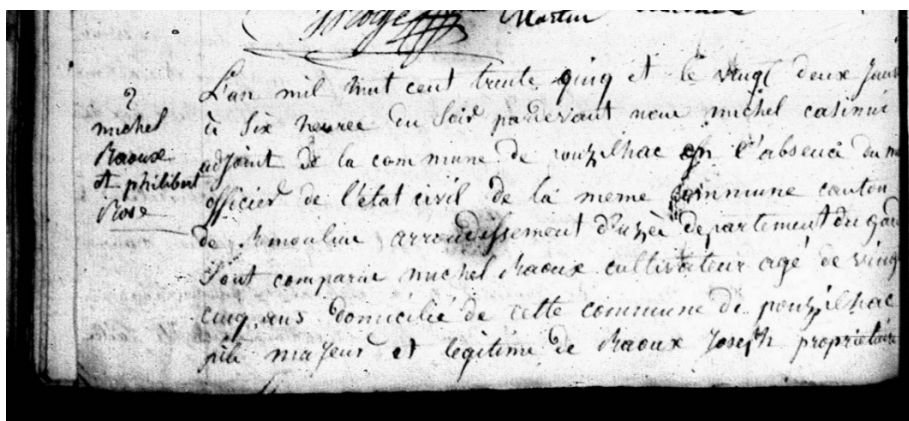 Martin
2
michel
Raoux
et philibert
Rose
L'an mil huit cent trente cinq et le vingt deux
à Six heures du Soir pardevant nous michel casimir
adjoint de la commune de pouzilhac en l'absence du
officier de l'état civil de la meme commune canton
de Remoulin arrondissement d'uzès departement du gard
Sont comparu michel Raoux cultivateur agé de vingt
cinq ans domicilié de cette commune de pouzilhac
fils majeur et legitime de Raoux Joseph proprietaire